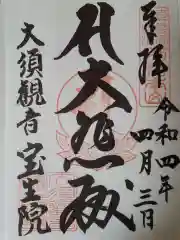 奉拝
令和四年
四月三日
大悲殿
大須観音
宝生院